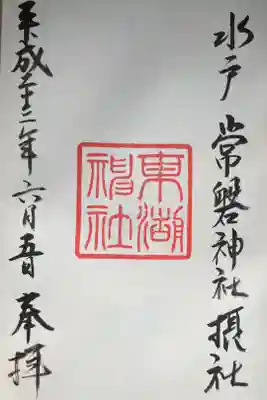 水戸 常磐神社摂社
東湖
神社
平成廿二年六月五日 奉拝